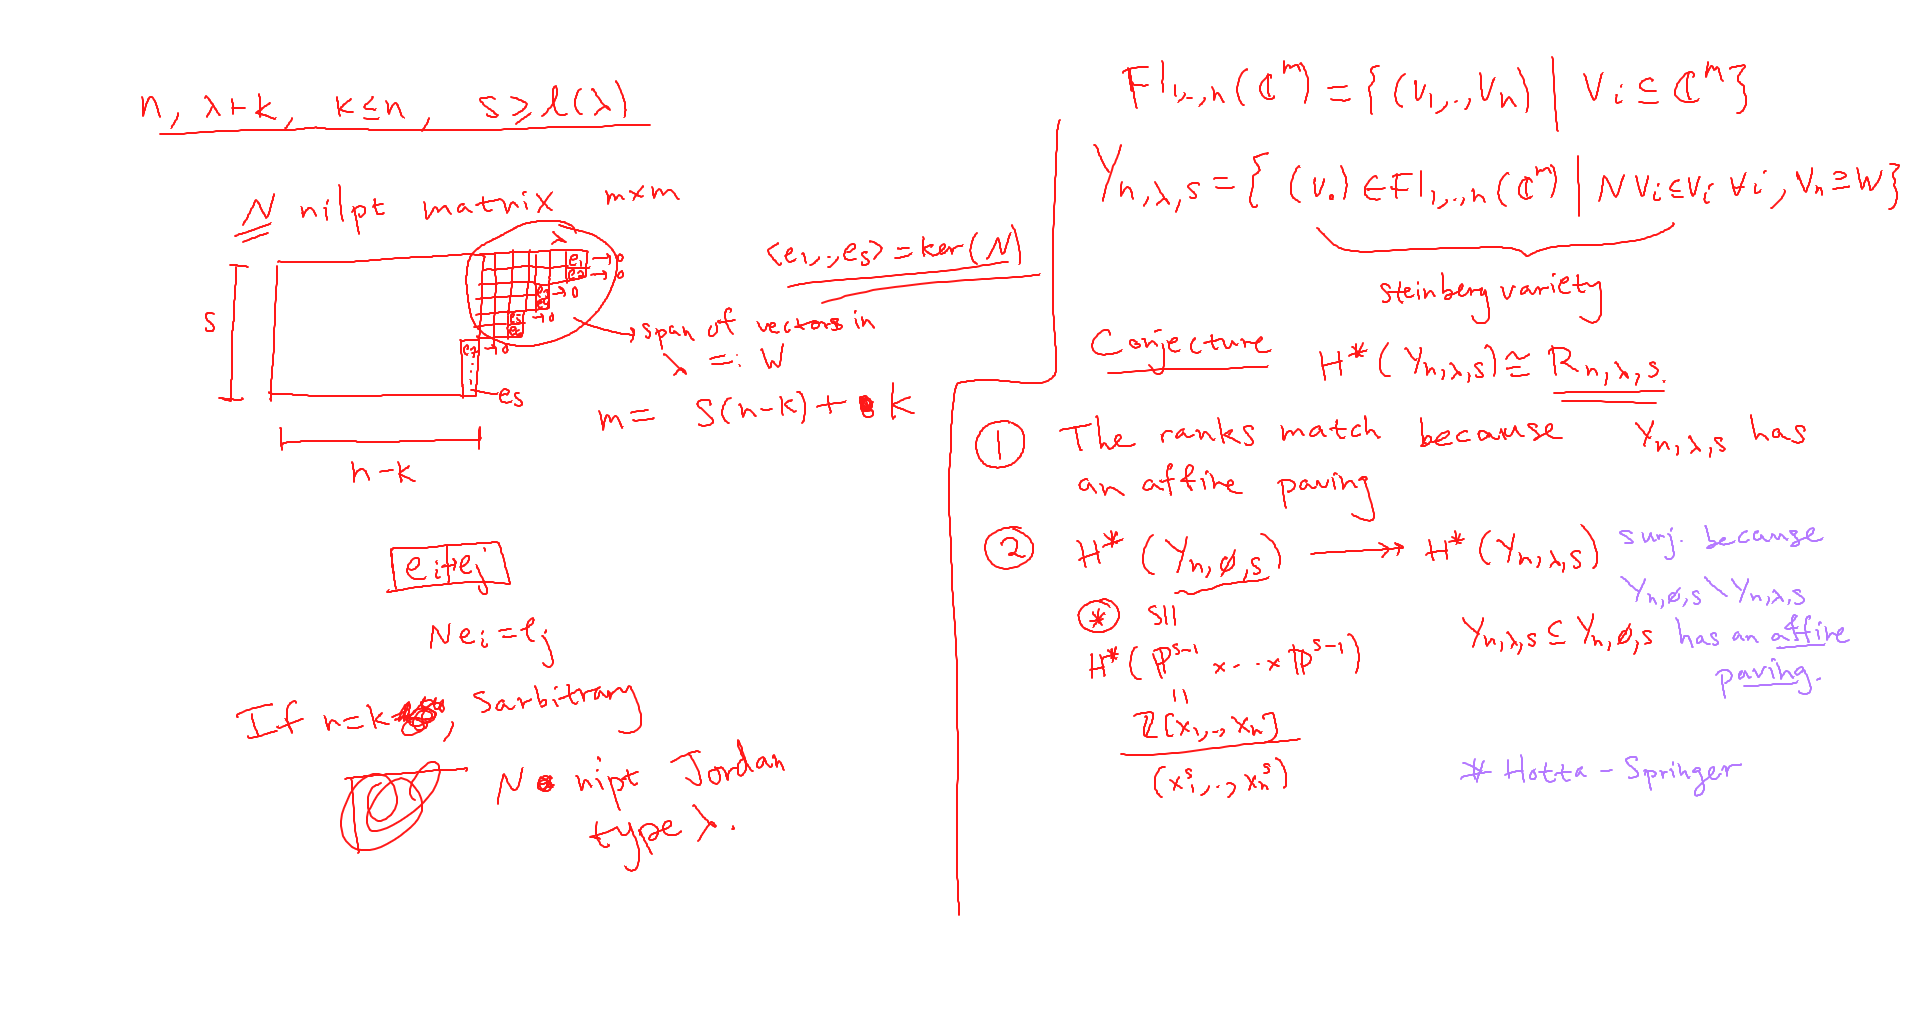 n, λ⊢k, k≤n, s≥ℓ(λ)
N nilpt matrix m×m
λ
e₁ → 0
e₂ → 0
→ 0
e₅ → 0
e₇ → 0
e_s
s
n-k
→ span of vectors in
λ =: W
<e₁,..,e_s> = ker(N)
m = s(n-k) + k
e_i→e_j
Ne_i = e_j
If n=k, s arbitrary
N nipt Jordan
type λ.
Fl₁,..,ₙ(ℂᵐ) = {(V₁,..,Vₙ) | V_i ⊆ ℂᵐ}
Y_{n,λ,s} = {(V.) ∈ Fl₁,..,ₙ(ℂᵐ) | NV_i ⊆ V_i ∀i, Vₙ ⊇ W}
Steinberg variety
Conjecture H*(Y_{n,λ,s}) ≅ R_{n,λ,s}.
① The ranks match because Y_{n,λ,s} has
an affine paving
② H*(Y_{n,∅,s}) ↠ H*(Y_{n,λ,s}) surj. because
Y_{n,∅,s} \ Y_{n,λ,s}
Y_{n,λ,s} ⊆ Y_{n,∅,s} has an affine
paving.
* S||
H*(ℙ^{s-1} × ··· × ℙ^{s-1})
||
ℤ[x₁,..,xₙ]
(x₁^s,..,xₙ^s)
* Hotta - Springer